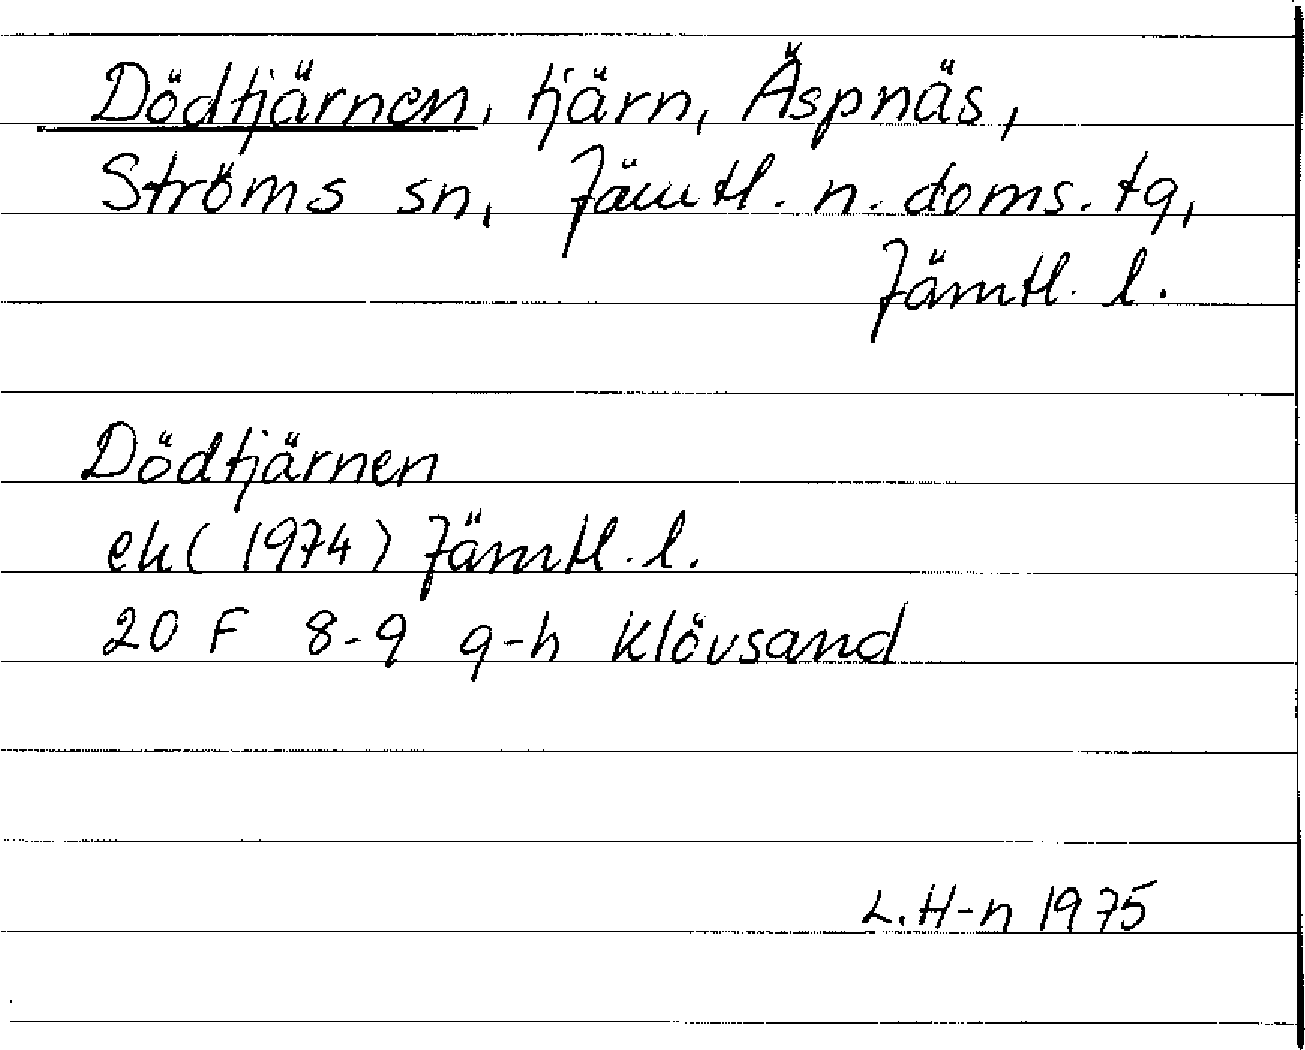 Dödtjärnen, tjärn, Äspnäs,
Ströms sn, Jämtl. n. doms. tg,
Jämtl. l.
Dödtjärnen
ek (1974) Jämtl. l.
20 F 8-9 g-h Klövsand
L. H-n 1975